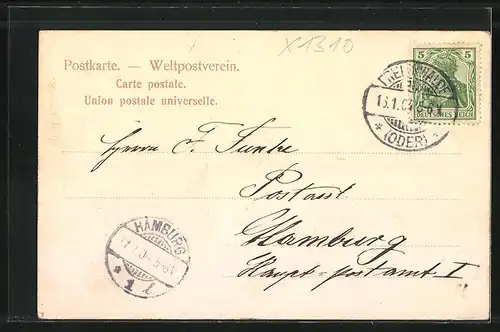 X1310
Postkarte. — Weltpostverein.
Carte postale.
Union postale universelle.
5 5
DEUTSCHES REICH
16.1.04
* (ODER) *
Herrn F. Funke
Postamt
Hamburg
Haupt-postamt I
HAMBURG
* 1